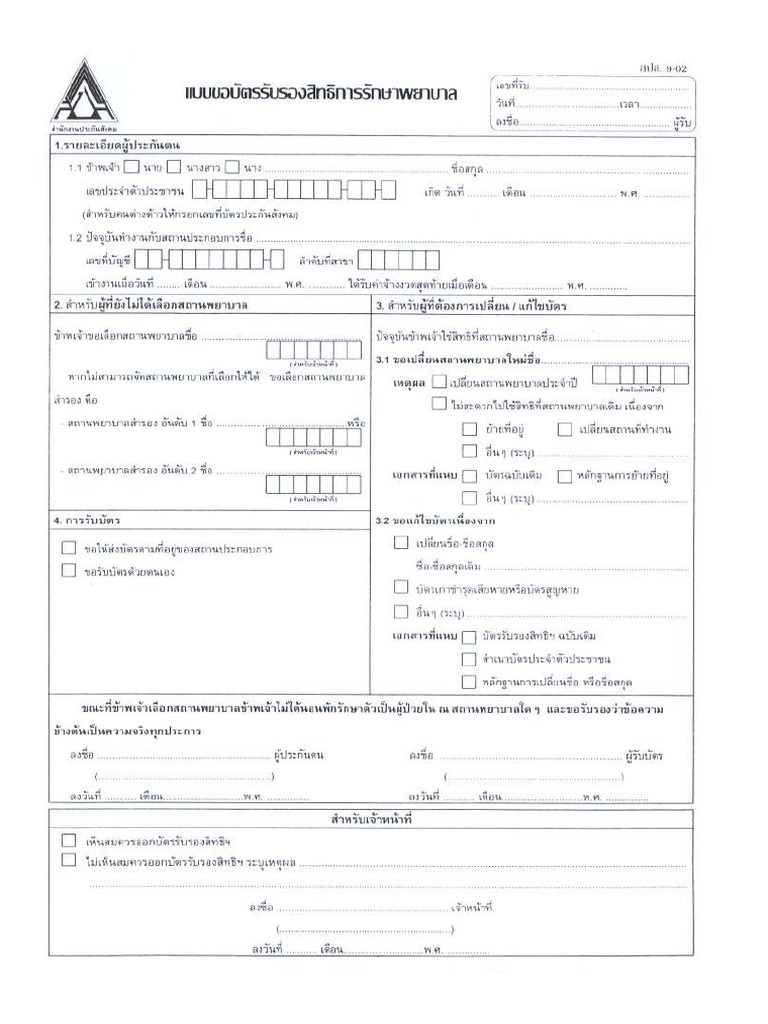 สปส. 9-02
แบบขอบัตรรับรองสิทธิการรักษาพยาบาล
เลขที่รับ
วันที่ เวลา
ลงชื่อ ผู้รับ
สำนักงานประกันสังคม
1.รายละเอียดผู้ประกันตน
1.1 ข้าพเจ้า นาย นางสาว นาง ชื่อสกุล
เลขประจำตัวประชาชน เกิด วันที่ เดือน พ.ศ.
(สำหรับคนต่างด้าวให้กรอกเลขที่บัตรประกันสังคม)
1.2 ปัจจุบันทำงานกับสถานประกอบการชื่อ
เลขที่บัญชี ลำดับที่สาขา
เข้างานเมื่อวันที่ เดือน พ.ศ. ได้รับค่าจ้างงวดสุดท้ายเมื่อเดือน พ.ศ.
2. สำหรับผู้ที่ยังไม่ได้เลือกสถานพยาบาล
ข้าพเจ้าขอเลือกสถานพยาบาลชื่อ
( สำหรับเจ้าหน้าที่ )
หากไม่สามารถจัดสถานพยาบาลที่เลือกให้ได้ ขอเลือกสถานพยาบาล
สำรอง คือ
- สถานพยาบาลสำรอง อันดับ 1 ชื่อ หรือ
( สำหรับเจ้าหน้าที่ )
- สถานพยาบาลสำรอง อันดับ 2 ชื่อ
( สำหรับเจ้าหน้าที่ )
3. สำหรับผู้ที่ต้องการเปลี่ยน / แก้ไขบัตร
ปัจจุบันข้าพเจ้าใช้สิทธิที่สถานพยาบาลชื่อ
3.1 ขอเปลี่ยนสถานพยาบาลใหม่ชื่อ
เหตุผล เปลี่ยนสถานพยาบาลประจำปี
( สำหรับเจ้าหน้าที่ )
ไม่สะดวกไปใช้สิทธิที่สถานพยาบาลเดิม เนื่องจาก
ย้ายที่อยู่ เปลี่ยนสถานที่ทำงาน
อื่นๆ (ระบุ)
เอกสารที่แนบ บัตรฉบับเดิม หลักฐานการย้ายที่อยู่
อื่นๆ (ระบุ)
4. การรับบัตร
ขอให้ส่งบัตรตามที่อยู่ของสถานประกอบการ
ขอรับบัตรด้วยตนเอง
3.2 ขอแก้ไขบัตรเนื่องจาก
เปลี่ยนชื่อ-ชื่อสกุล
ชื่อ-ชื่อสกุลเดิม
บัตรเก่าชำรุดเสียหายหรือบัตรสูญหาย
อื่นๆ (ระบุ)
เอกสารที่แนบ บัตรรับรองสิทธิฯ ฉบับเดิม
สำเนาบัตรประจำตัวประชาชน
หลักฐานการเปลี่ยนชื่อ หรือชื่อสกุล
ขณะที่ข้าพเจ้าเลือกสถานพยาบาลข้าพเจ้าไม่ได้นอนพักรักษาตัวเป็นผู้ป่วยใน ณ สถานพยาบาลใด ๆ และขอรับรองว่าข้อความ
ข้างต้นเป็นความจริงทุกประการ
ลงชื่อ ผู้ประกันตน ลงชื่อ ผู้รับบัตร
( ) ( )
ลงวันที่ เดือน พ.ศ. ลงวันที่ เดือน พ.ศ.
สำหรับเจ้าหน้าที่
เห็นสมควรออกบัตรรับรองสิทธิฯ
ไม่เห็นสมควรออกบัตรรับรองสิทธิฯ ระบุเหตุผล
ลงชื่อ เจ้าหน้าที่
( )
ลงวันที่ เดือน พ.ศ.